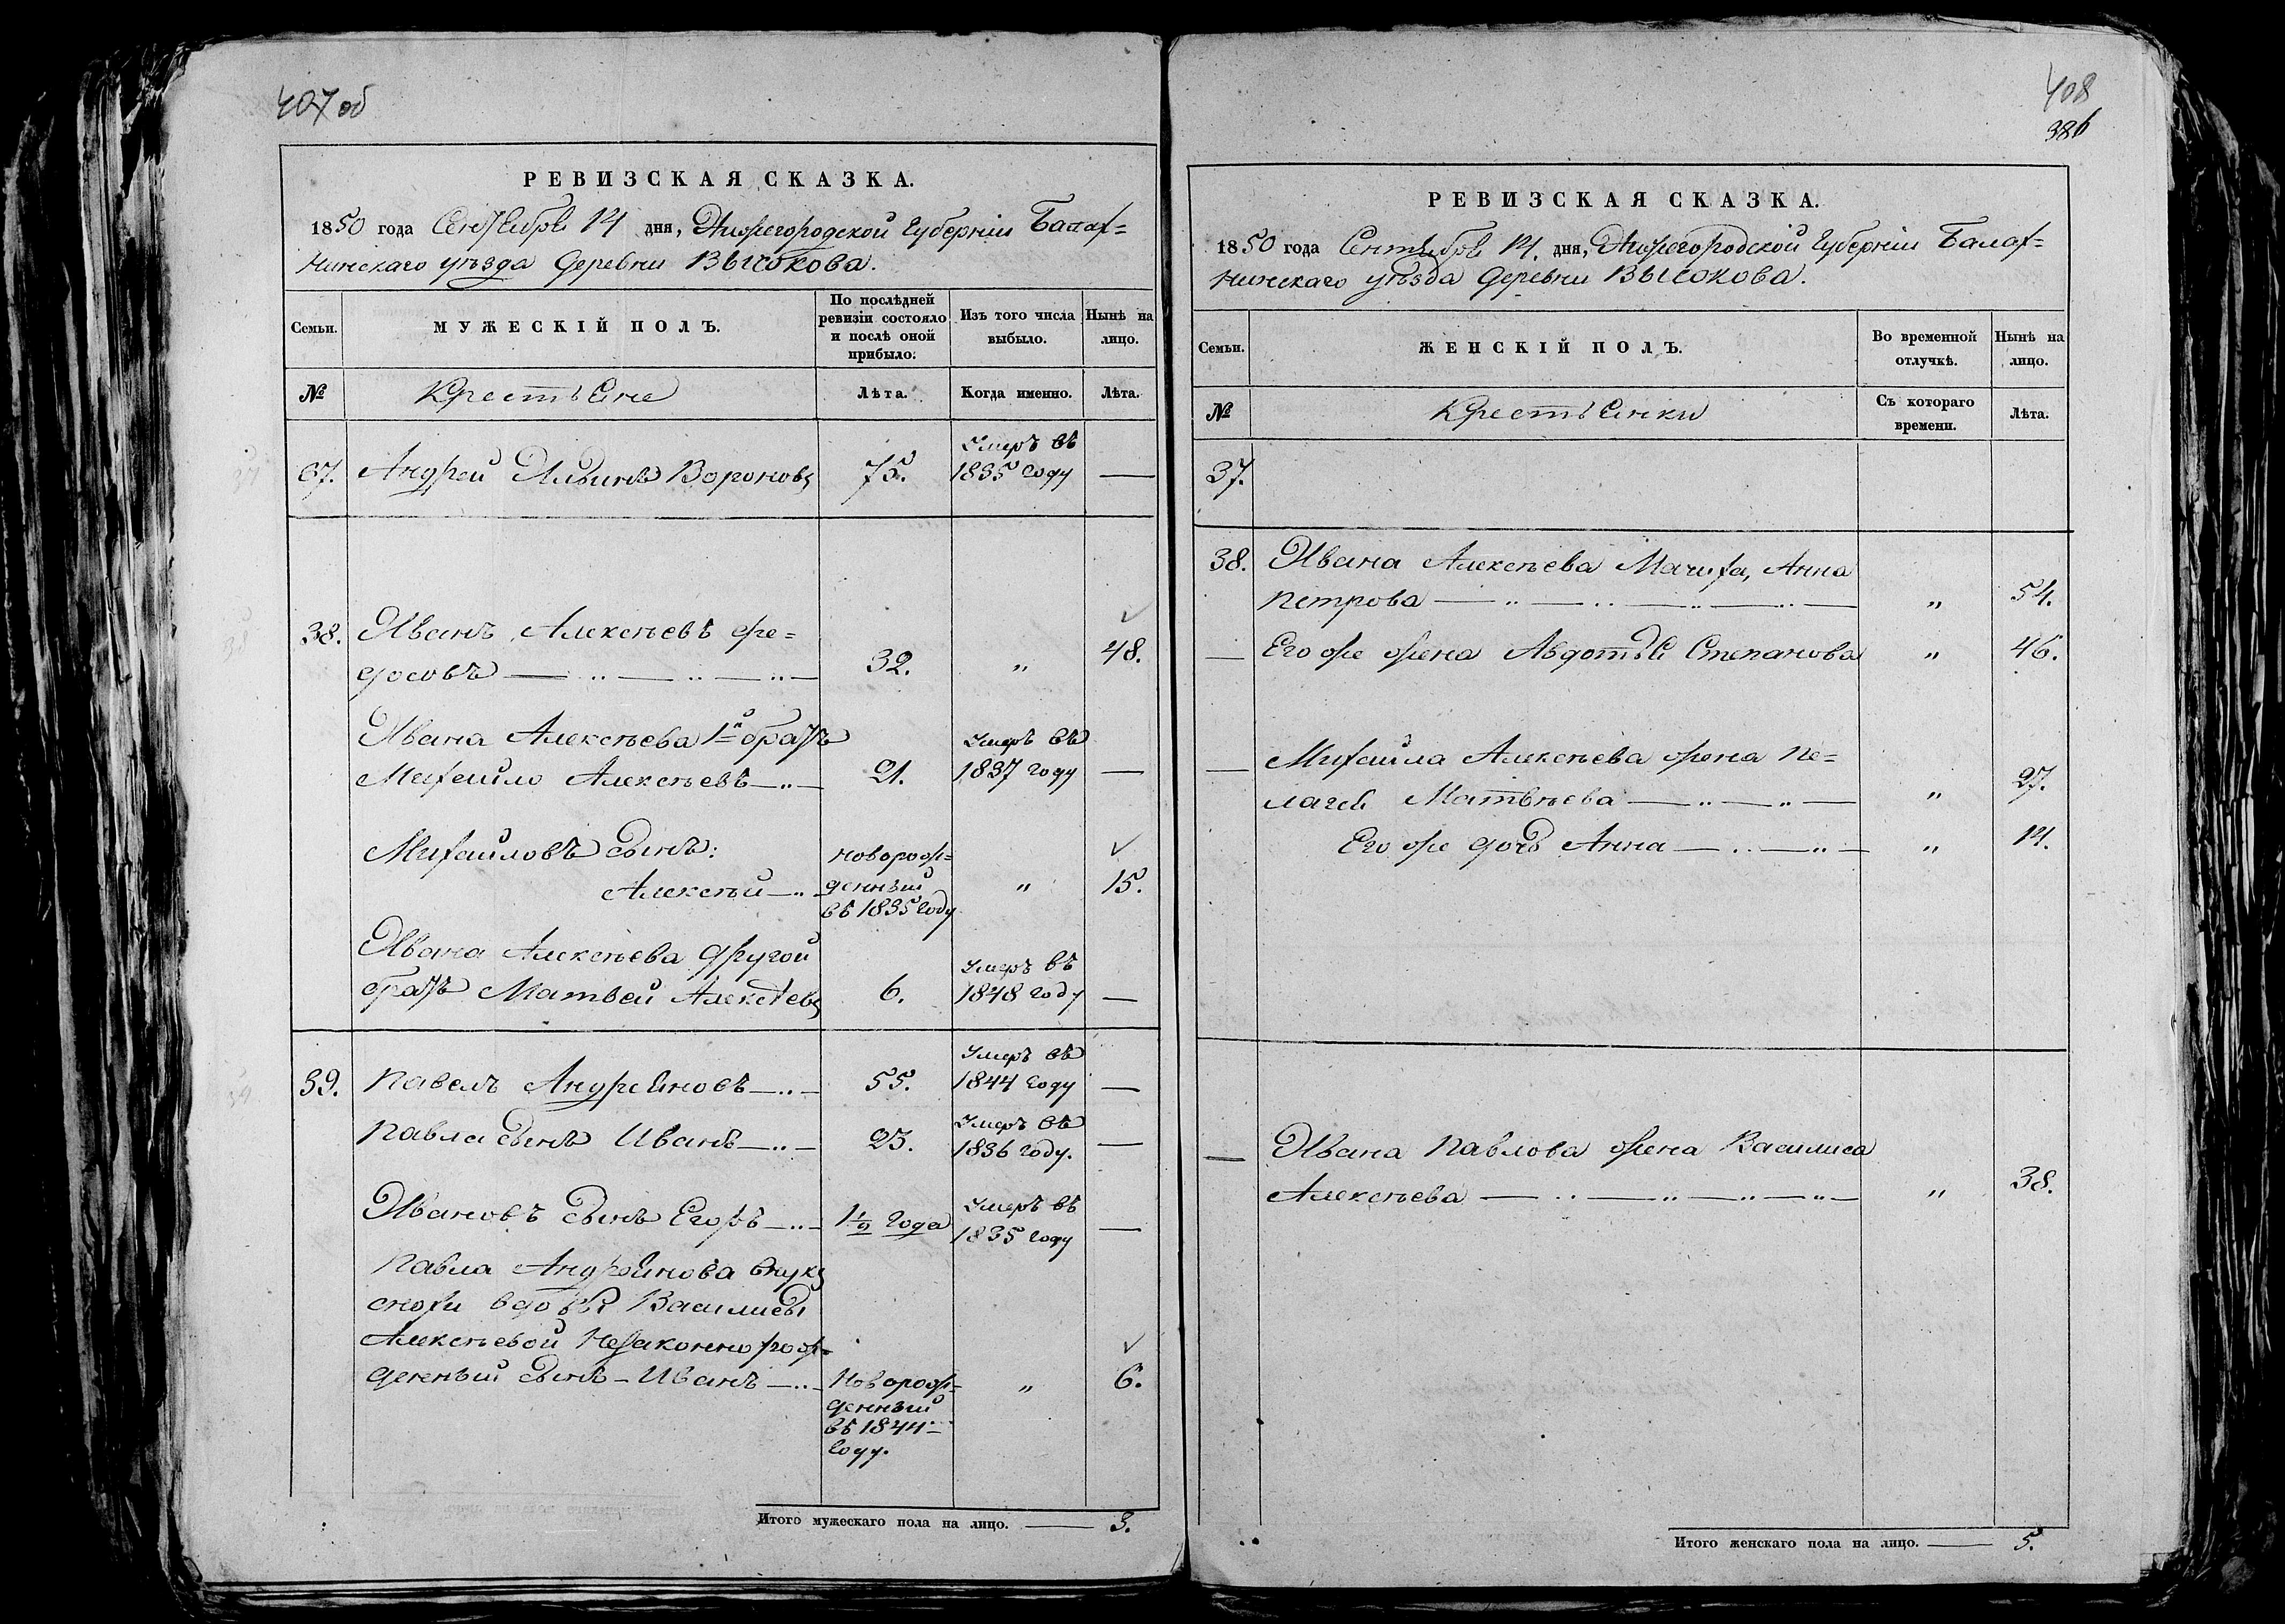 407 об
РЕВИЗСКАЯ СКАЗКА.
1850 года Сентября 14 дня, Нижегородской Губерніи Балах=
нинскаго уѣзда деревни Высокова.
Семьи.
МУЖЕСКІЙ ПОЛЪ.
По послѣдней ревизіи состояло и послѣ оной прибыло.
Изъ того числа выбыло.
Нынѣ на лицо.
№
Крестьяне
Лѣта.
Когда именно.
Лѣта.
Умеръ въ
37. Андрей Ильинъ Вороновъ 75. 1835 году —
38. Иванъ Алексѣевъ Фе=
досовъ — 32. „ 48.
Ивана Алексѣева 1й братъ Умеръ въ
Михайло Алексѣевъ — 21. 1837 году —
Михайловъ сынъ: новорож=
Алексѣй — денный „ 15.
въ 1835 году
Ивана Алексѣева другой Умеръ въ
братъ Матвей Алексѣевъ 6. 1848 году —
Умеръ въ
39. Павелъ Андреяновъ — 55. 1844 году —
Умеръ въ
Павла сынъ Иванъ — 23. 1836 году. —
Умеръ въ
Ивановъ сынъ Егоръ — 1½ года 1835 году —
Павла Андреянова внукъ
снохи вдовы Василисы
Алексѣевой незаконнорож=
денный сынъ - Иванъ — Новорож= „ 6.
денный
въ 1844
году.
Итого мужескаго пола на лицо. — 3.
408
386
РЕВИЗСКАЯ СКАЗКА.
1850 года Сентября 14. дня, Нижегородской Губерніи Балах=
нинскаго уѣзда деревни Высокова.
Семьи.
ЖЕНСКІЙ ПОЛЪ.
Во временной отлучкѣ.
Нынѣ на лицо.
№
Крестьянки
Съ котораго времени.
Лѣта.
37.
38. Ивана Алексѣева Мачиха, Анна
Петрова — „ 54.
— Его же жена Авдотья Степанова „ 46.
— Михайла Алексѣева жена Пе=
лагея Матвѣева — „ 27.
Его же дочь Анна — „ 14.
— Ивана Павлова жена Василиса
Алексѣева — „ 38.
Итого женскаго пола на лицо. — 5.